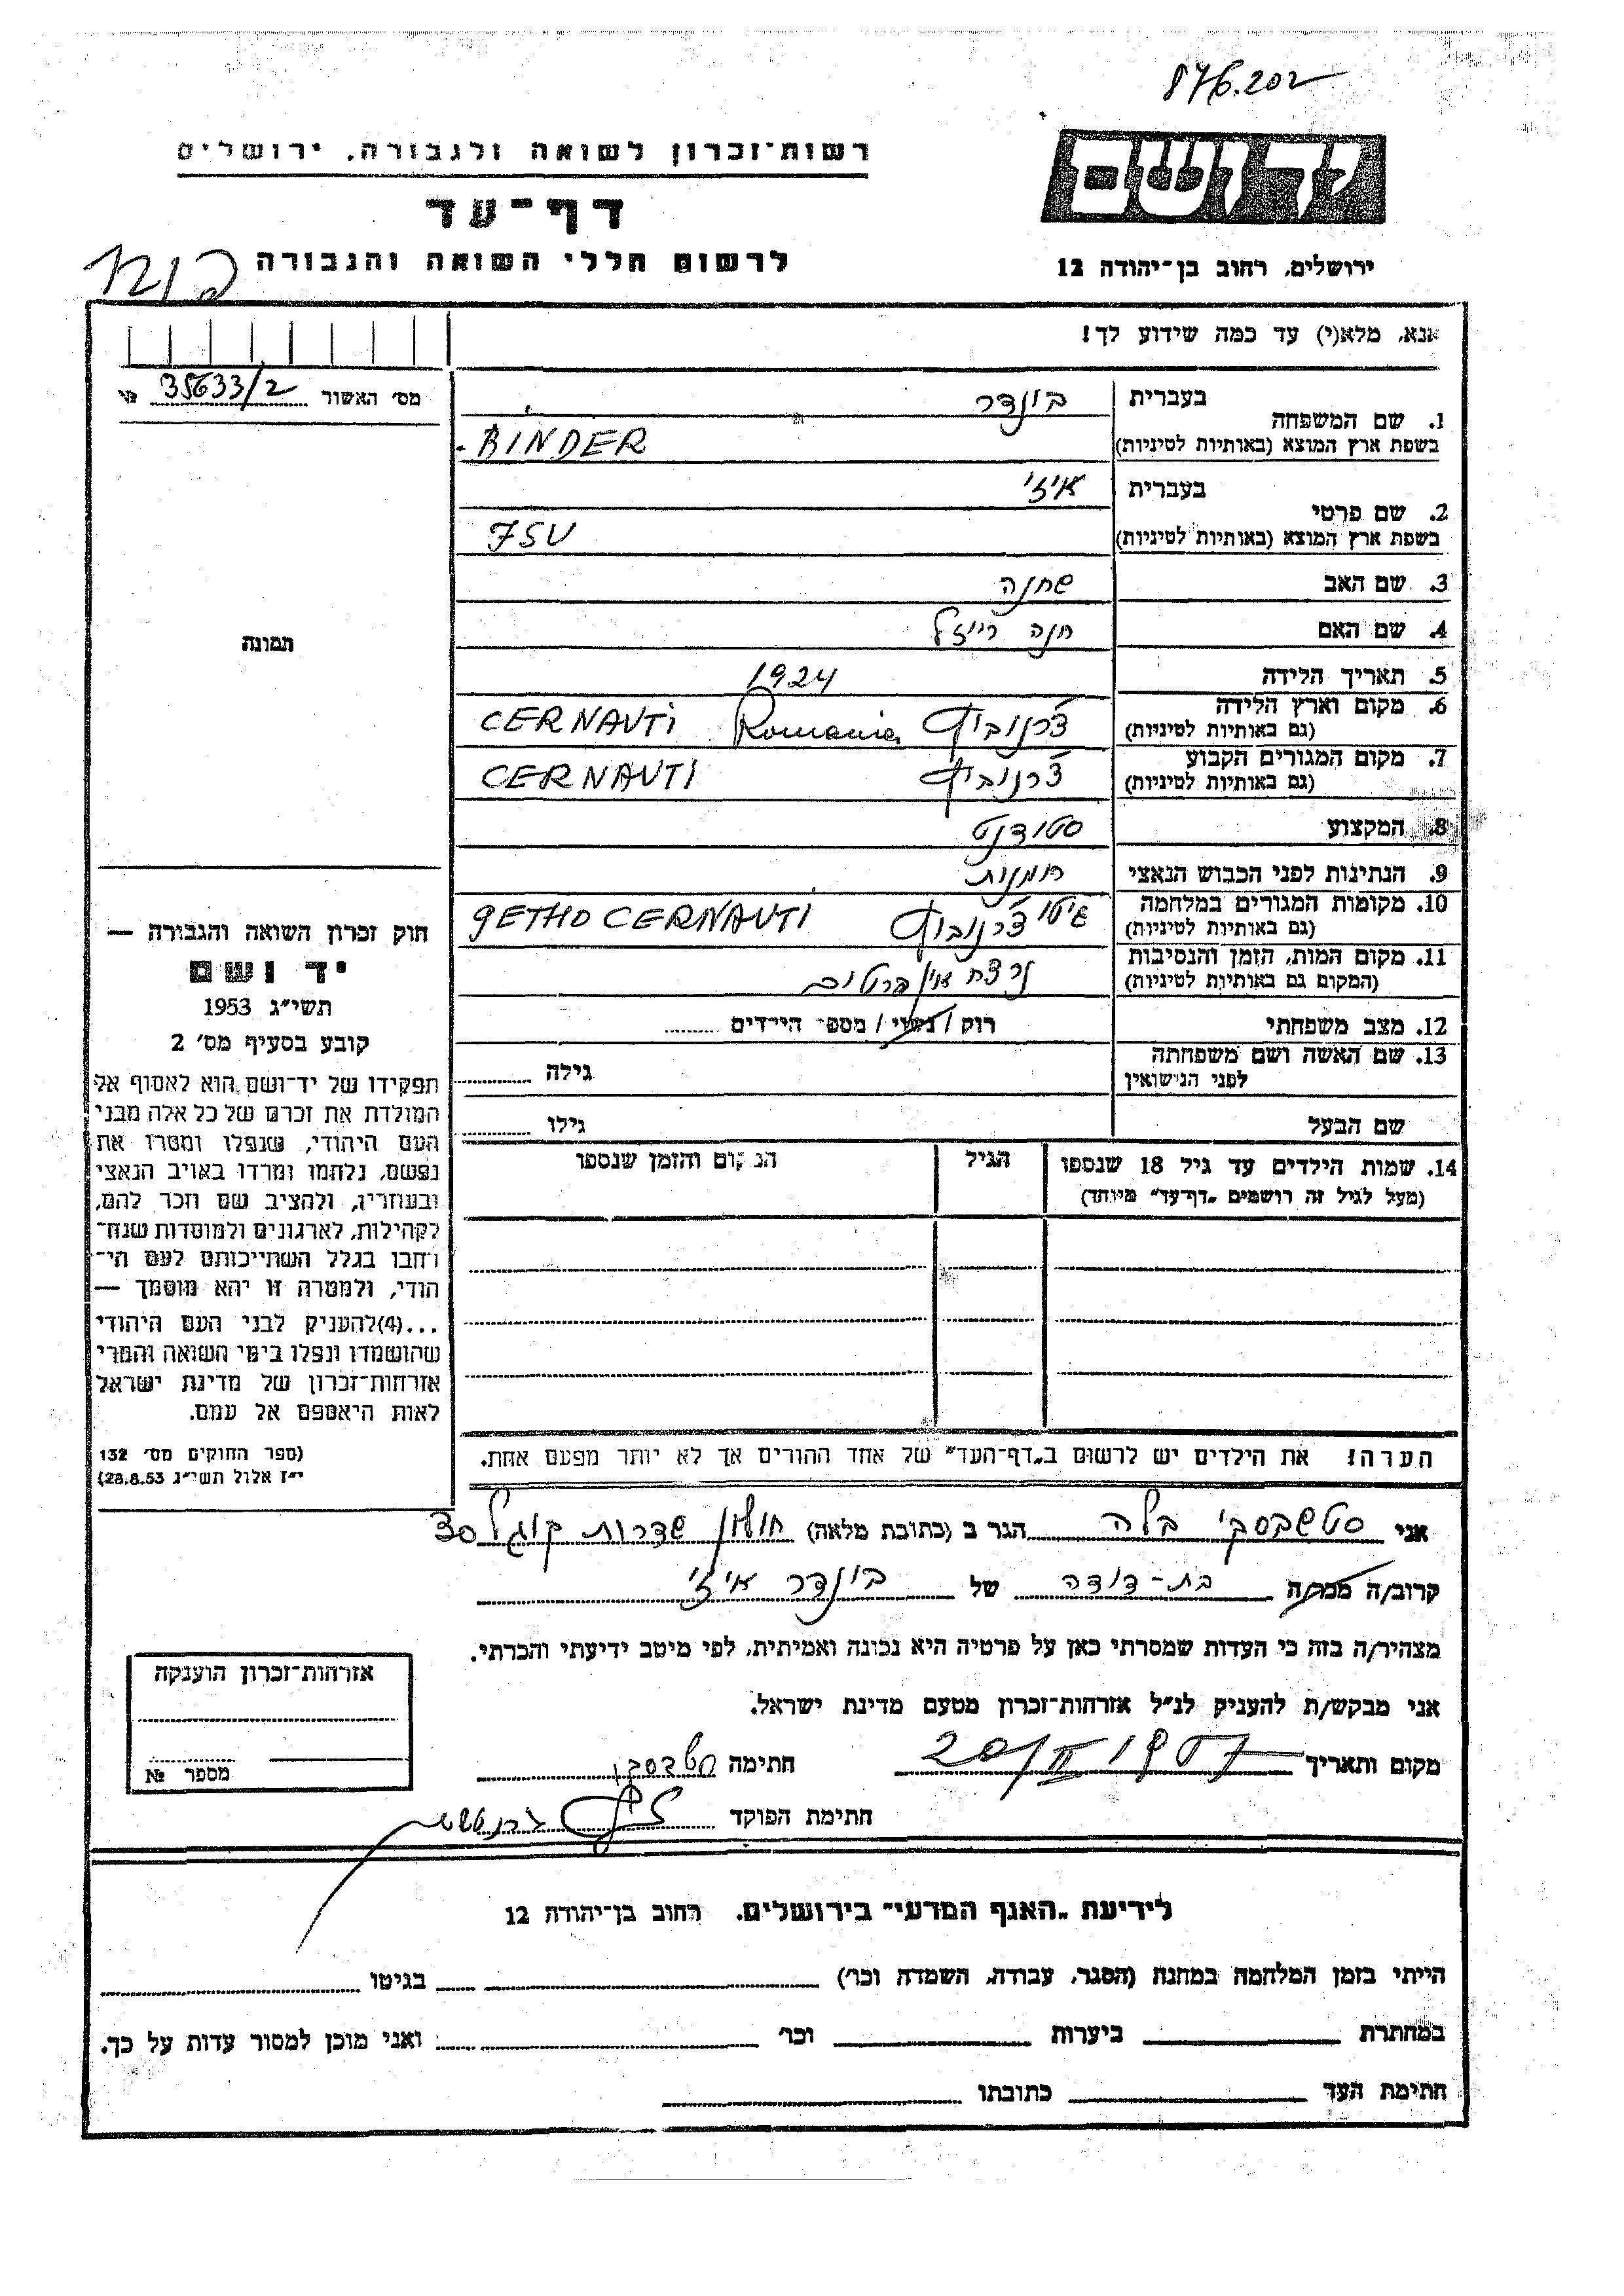 876.202
יד ושם
רשות־זכרון לשואה ולגבורה, ירושלים
דף־עד
לרשום חללי השואה והגבורה
ירושלים, רחוב בן־יהודה 12
אנא, מלא(י) עד כמה שידוע לך!
מס׳ האשור 35633/2 №
1. שם המשפחה
בעברית בינדר
בשפת ארץ המוצא (באותיות לטיניות) BINDER
2. שם פרטי
בעברית איזי
בשפת ארץ המוצא (באותיות לטיניות) ISU
3. שם האב שחנה
4. שם האם חנה רייזל
5. תאריך הלידה 1924
6. מקום וארץ הלידה צ'רנוביץ Romania CERNAUTI
(גם באותיות לטיניות)
7. מקום המגורים הקבוע צ'רנוביץ CERNAUTI
(גם באותיות לטיניות)
8. המקצוע סטודנט
9. הנתינות לפני הכבוש הנאצי רומנית
10. מקומות המגורים במלחמה גיטו צ'רנוביץ GETHO CERNAUTI
(גם באותיות לטיניות)
11. מקום המות, הזמן והנסיבות נרצח
(המקום גם באותיות לטיניות)
12. מצב משפחתי רוק / נשוי / מספר הילדים
13. שם האשה ושם משפחתה
לפני הנישואין גילה
שם הבעל גילו
14. שמות הילדים עד גיל 18 שנספו הגיל המקום והזמן שנספו
(מעל לגיל זה רושמים „דף־עד״ מיוחד)
הערה! את הילדים יש לרשום ב„דף־העד״ של אחד ההורים אך לא יותר מפעם אחת.
תמונה
חוק זכרון השואה והגבורה —
יד ושם
תשי״ג 1953
קובע בסעיף מס׳ 2
תפקידו של יד־ושם הוא לאסוף אל
המולדת את זכרם של כל אלה מבני
העם היהודי, שנפלו ומסרו את
נפשם, נלחמו ומרדו באויב הנאצי
ובעוזריו, ולהציב שם וזכר להם,
לקהילות, לארגונים ולמוסדות שנח־
רחבו בגלל השתייכותם לעם הי־
הודי, ולמטרה זו יהא מוסמך —
...(4)להעניק לבני העם היהודי
שהושמדו ונפלו בימי השואה והמרי
אזרחות־זכרון של מדינת ישראל
לאות היאספם אל עמם.
(ספר החוקים מס׳ 132
י״ז אלול תשי״ג 28.8.53)
אני סטשבסקי בלה הגר ב (כתובת מלאה) חולון שדרות קוגל 30
קרוב/ה מכר/ה בת-דודה של בינדר איזי
מצהיר/ה בזה כי העדות שמסרתי כאן על פרטיה היא נכונה ואמיתית, לפי מיטב ידיעתי והכרתי.
אני מבקש/ת להעניק לנ״ל אזרחות־זכרון מטעם מדינת ישראל.
מקום ותאריך 20/II 1957 חתימה
חתימת הפוקד
אזרחות־זכרון הוענקה
מספר №
לידיעת „האגף המדעי״ בירושלים, רחוב בן־יהודה 12
הייתי בזמן המלחמה במחנה (הסגר, עבודה, השמדה וכו׳) בגיטו
במחתרת ביערות וכו׳ ואני מוכן למסור עדות על כך.
חתימת העד כתובתו